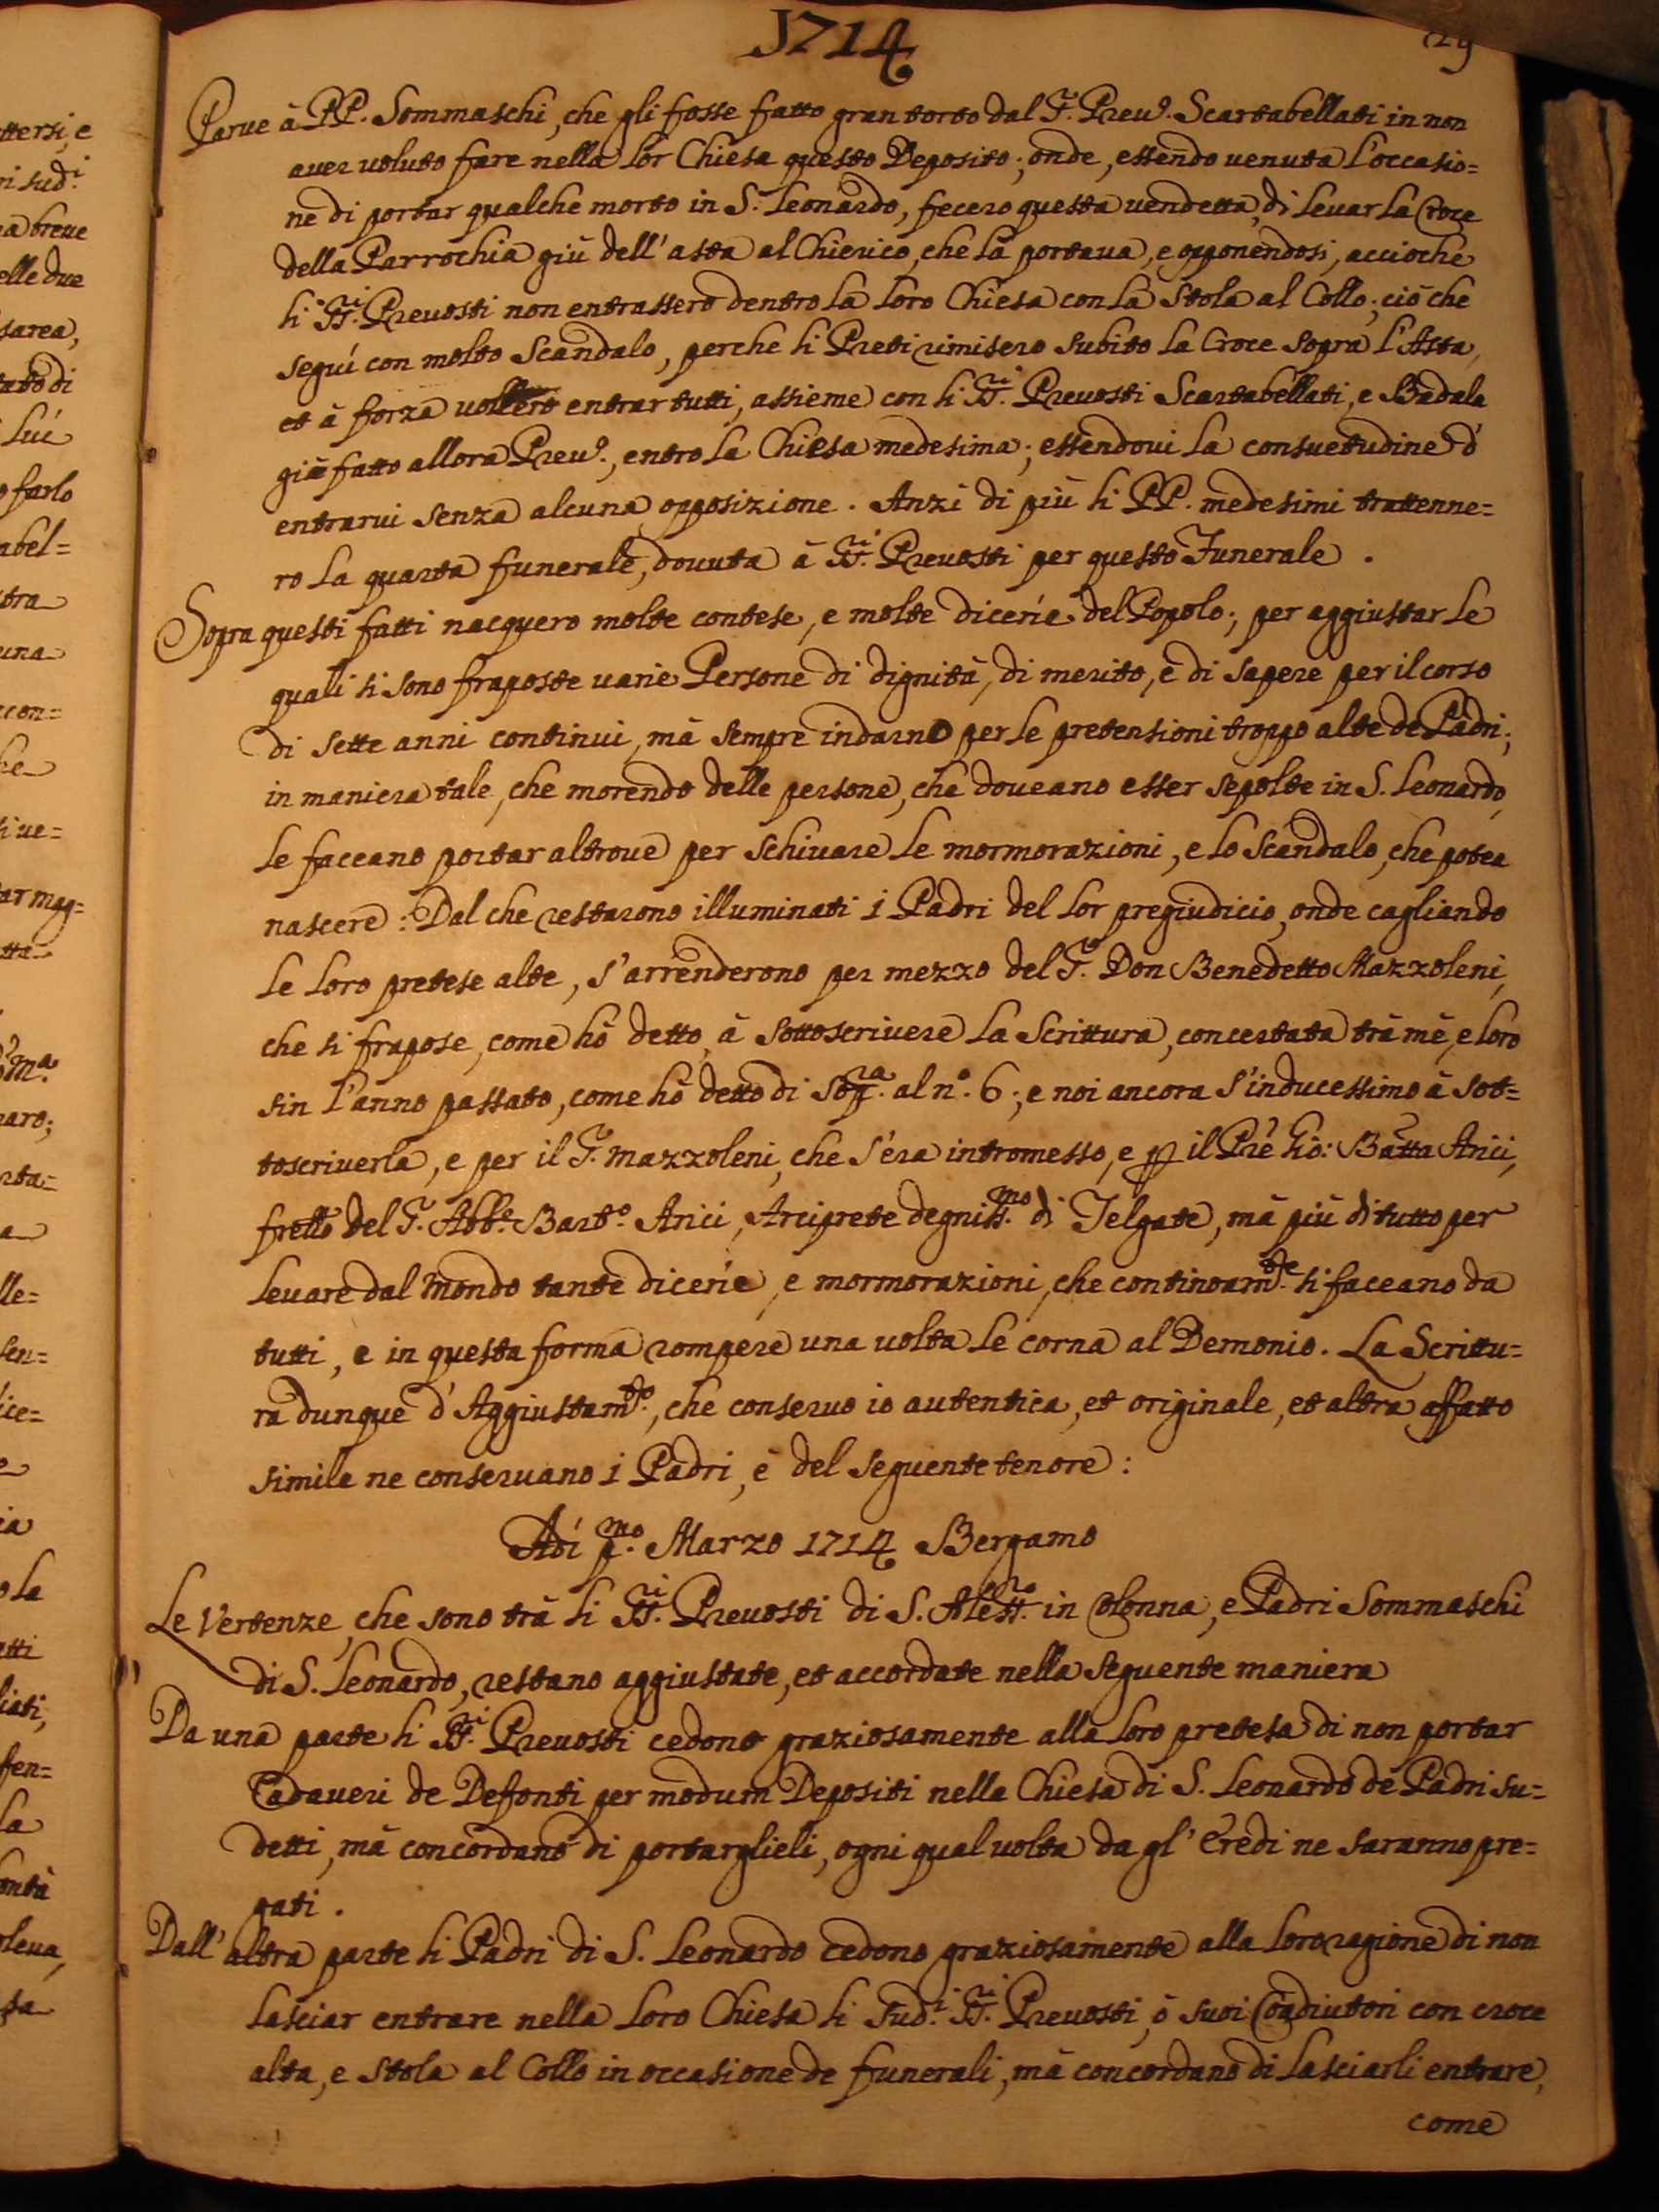 1714
Parue à PP. Sommaschi, che gli fosse fatto gran torto dal S. Preu.º Scartabellati in non
auer uoluto fare nella lor Chiesa questo Deposito; onde, essendo uenuta l'occasio=
ne di portar qualche morto in S. Leonardo, fecero questa uendetta, di leuar la Croce
della Parrochia giù dell'asta al Chierico, che la portaua, e opponendosi, accioche
li SS.ri Preuosti non entrassero dentro la loro Chiesa con la Stola al Collo; ciò che
seguì con molto Scandalo, perche li Preti rimisero subito la Croce sopra l'Asta,
et à forza uollero entrar tutti, assieme con li SS.ri Preuosti Scartabellati, e Badala
già fatto allora Preu.º, entro la Chiesa medesima; essendoui la consuetudine d'
entrarui senza alcuna opposizione. Anzi di più li PP. medesimi trattenne=
ro la quarta funerale, douuta à SS.ri Preuosti per questo Funerale.
Sopra questi fatti nacquero molte contese, e molte dicerie del Popolo; per aggiustar le
quali si sono fraposte uarie Persone di dignità, di merito, e di sapere per il corso
di sette anni continui, mà sempre indarno per le pretensioni troppo alte de Padri;
in maniera tale, che morendo delle persone, che doueano esser sepolte in S. Leonardo,
le faceano portar altroue per schiuare le mormorazioni, e lo scandalo, che potea
nascere: Dal che restarono illuminati i Padri del lor pregiudicio, onde cagliando
le loro pretese alte, s'arrenderono per mezzo del S.r Don Benedetto Mazzoleni,
che si frapose, come hò detto, à sottoscriuere la Scrittura, concertata trà mè, e loro
sin l'anno passato, come hò detto di sop.ra al n.º 6; e noi ancora s'inducessimo à sot=
toscriuerla, e per il S. Mazzoleni, che s'era intromesso, e p il Prè Gio: Batta Arici,
frello del S. Abb.e Bart.º Arici, Arciprete degniss.mo di Telgate, mà più di tutto per
leuare dal Mondo tante dicerie, e mormorazioni, che continoam.te si faceano da
tutti, e in questa forma rompere una uolta le corna al Demonio. La Scrittu=
ra dunque d'Aggiustam.to, che conseruo io autentica, et originale, et altra affatto
simile ne conseruano i Padri, è del seguente tenore:
Adì p.mo Marzo 1714 Bergamo
Le Vertenze, che sono trà li SS.ri Preuosti di S. Aless.ro in Colonna, e Padri Sommaschi
di S. Leonardo, restano aggiustate, et accordate nella seguente maniera
Da una parte li SS.ri Preuosti cedono graziosamente alla loro pretesa di non portar
Cadaueri de Defonti per modum Depositi nella Chiesa di S. Leonardo de Padri su=
detti, mà concordano di portarglieli, ogni qual uolta da gl'Eredi ne saranno pre=
gati.
Dall'altra parte li Padri di S. Leonardo cedono graziosamente alla loro ragione di non
lasciar entrare nella loro Chiesa li sud.i SS.ri Preuosti, ò suoi Coadiutori con croce
alta, e stola al Collo in occasione de funerali, mà concordano di lasciarli entrare,
come